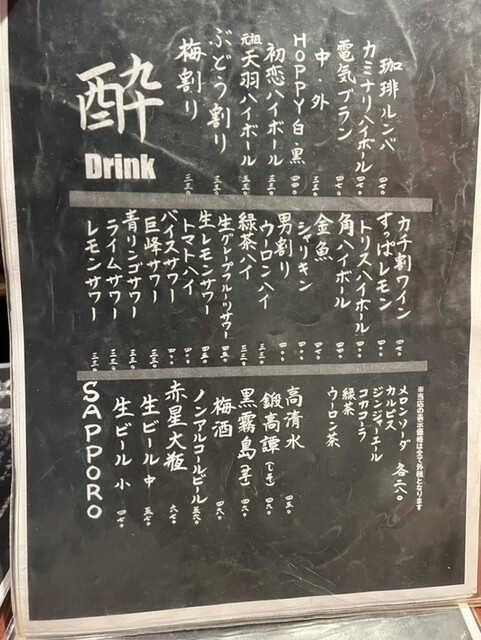 酔
Drink
珈琲ルンバ 四七〇
カミナリハイボール 四七〇
電気ブラン 四七〇
中・外
HOPPY白・黒 四四〇
初恋ハイボール
元祖天羽ハイボール
ぶどう割り 三三〇
梅割り 三三〇
カチ割ワイン 四七〇
すっぱレモン 四〇〇
トリスハイボール 四〇〇
角ハイボール
金魚 四七〇
シャリキン 四〇〇
男割り 四〇〇
ウーロンハイ 三三〇
緑茶ハイ 三三〇
生グレープフルーツサワー 四五〇
生レモンサワー 四五〇
トマトハイ 四〇〇
バイスサワー 四〇〇
巨峰サワー 三三〇
青リンゴサワー 三三〇
ライムサワー 三三〇
レモンサワー 三三〇
※当店の表示価格は全て外税となります
メロンソーダ 各二八〇
カルピス
ジンジャーエール
コカコーラ
緑茶
ウーロン茶
高清水 四五〇
鍛高譚(しそ) 四八〇
黒霧島(芋) 四八〇
梅酒 四八〇
ノンアルコールビール
赤星大瓶 六七〇
生ビール 中 五七〇
生ビール 小 四七〇
SAPPORO